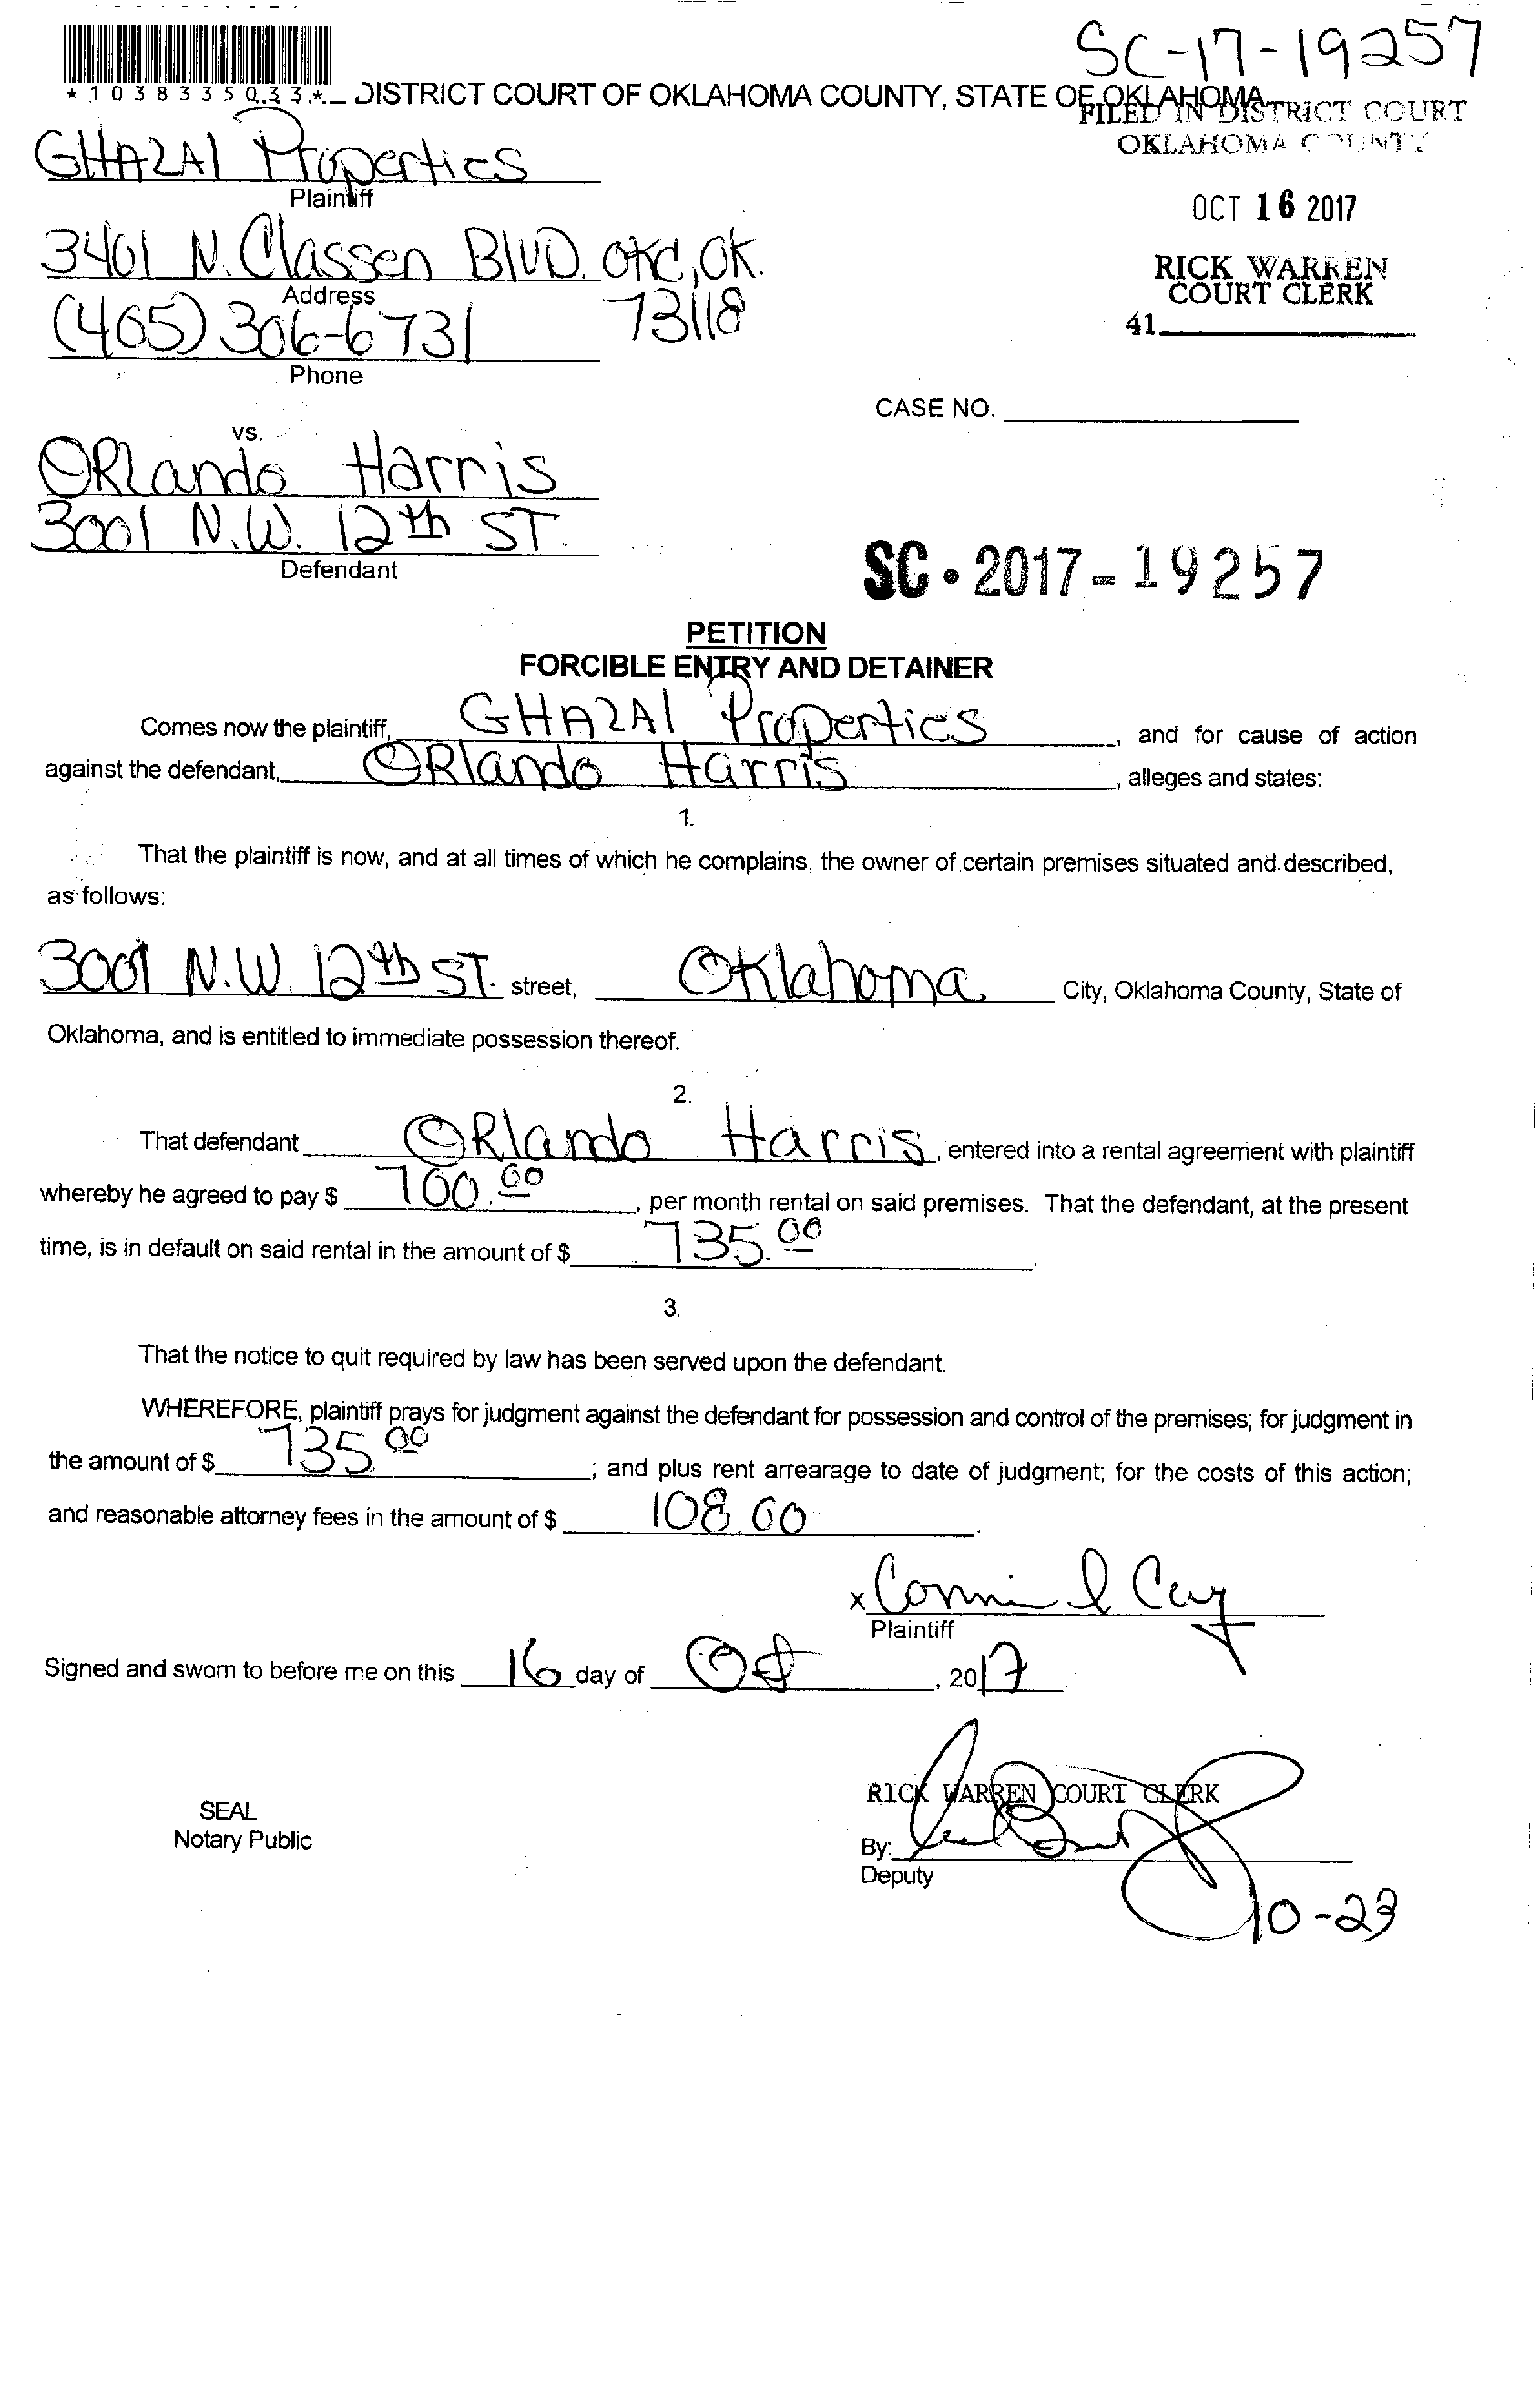 SC-17-19257
*1038335033*
DISTRICT COURT OF OKLAHOMA COUNTY, STATE OF OKLAHOMA
FILED IN DISTRICT COURT
OKLAHOMA COUNTY
GHAZAl Properties
Plaintiff
OCT 16 2017
3401 N. Classen BlVD. OKC, OK.
Address
73118
RICK WARREN
COURT CLERK
(405) 306-6731
41
Phone
CASE NO.
vs.
ORlando Harris
3001 N.W. 12th ST.
Defendant
SC-2017-19257
PETITION
FORCIBLE ENTRY AND DETAINER
Comes now the plaintiff, GHAZAl Properties, and for cause of action
against the defendant, ORlando Harris, alleges and states:
1.
That the plaintiff is now, and at all times of which he complains, the owner of certain premises situated and described,
as follows:
3001 N.W. 12th ST. street, Oklahoma City, Oklahoma County, State of
Oklahoma, and is entitled to immediate possession thereof.
2.
That defendant ORlando Harris, entered into a rental agreement with plaintiff
whereby he agreed to pay $ 700.00, per month rental on said premises. That the defendant, at the present
time, is in default on said rental in the amount of $ 735.00.
3.
That the notice to quit required by law has been served upon the defendant.
WHEREFORE, plaintiff prays for judgment against the defendant for possession and control of the premises; for judgment in
the amount of $ 735.00; and plus rent arrearage to date of judgment; for the costs of this action;
and reasonable attorney fees in the amount of $ 108.00.
x
Plaintiff
Signed and sworn to before me on this 16 day of Oct, 2017.
RICK WARREN COURT CLERK
SEAL
Notary Public
By:
Deputy
10-23